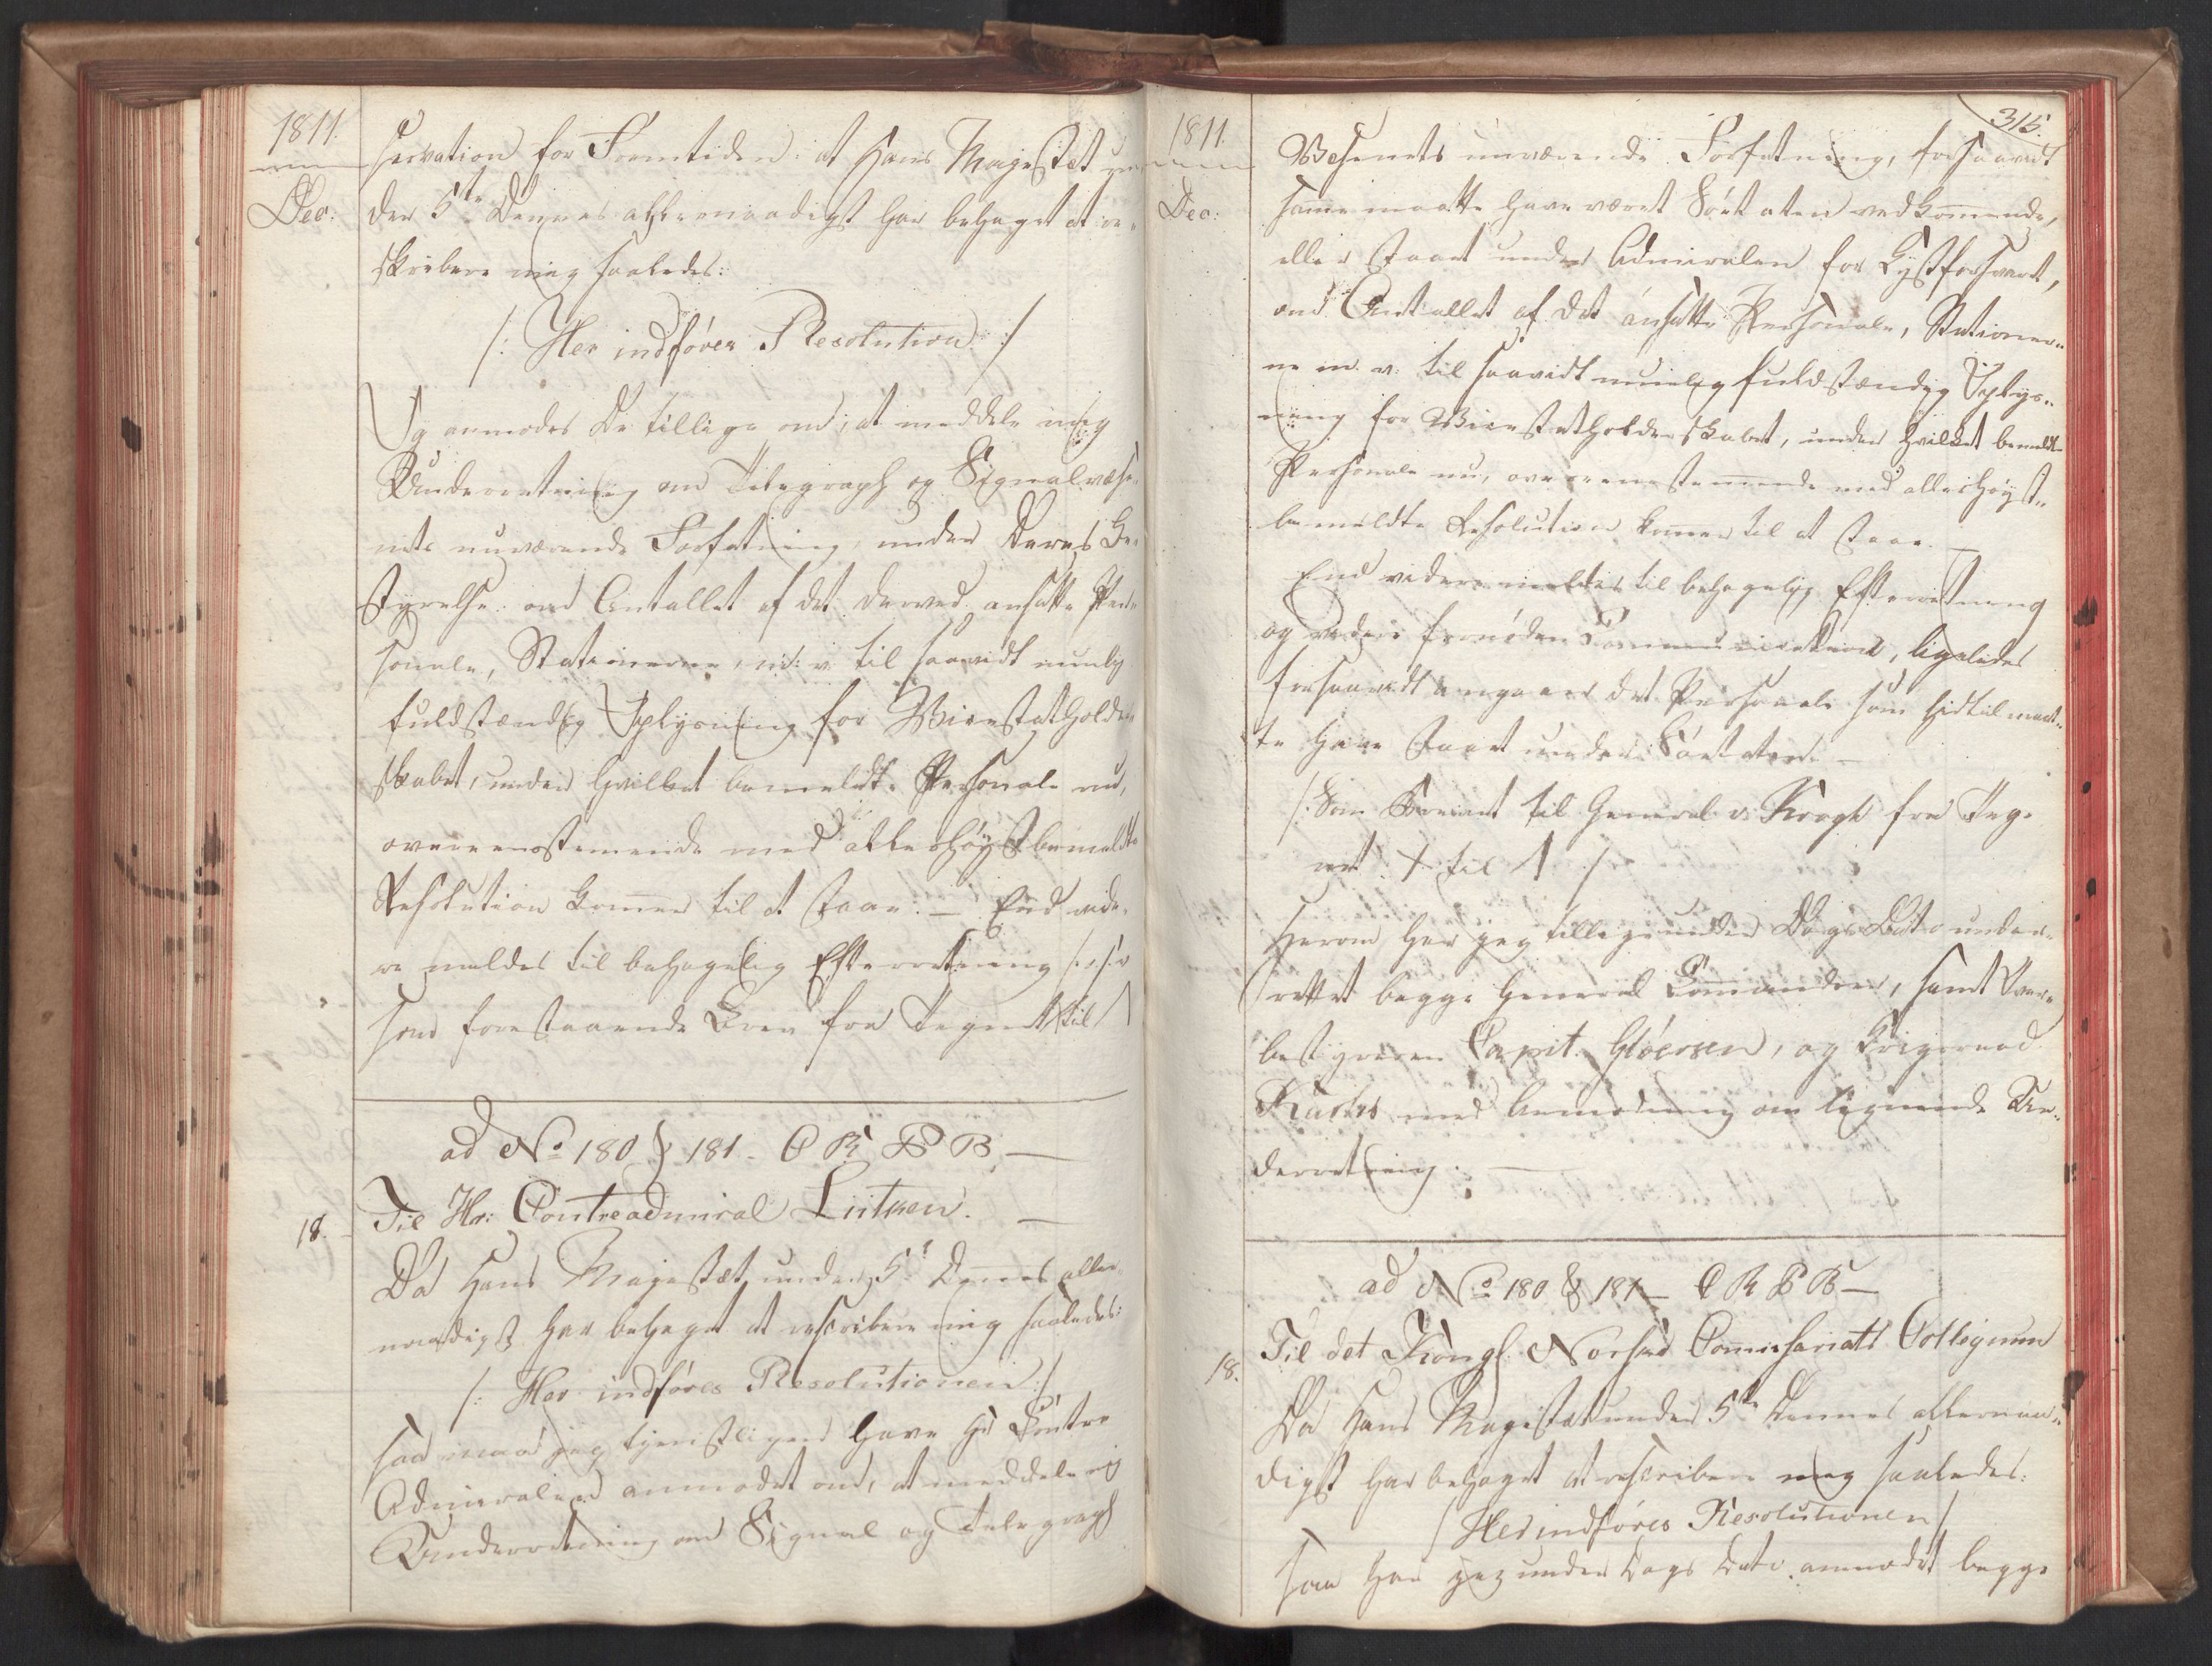 1811.
Dec:
servation for Fremtiden: at Hans Majestæt un„
der 5te Dennes allernaadigst har behaget at re„
skribere mig saaledes:
/: Her indføres Resolution :/
Og anmodes De tillige om, at meddele mig
Underretning om Telegraph og Signalvæse„
nets nuværende Forfatning, under Deres Be„
styrelse, om Antallet af det derved ansatte Per„
sonale, Stationerne m: v: til saavidt muelig
fuldstændig Oplysning for Vicestatholder„
skabet, under hvilket bemeldte Personale nu,
overeenstemmende med allerhøystbemeldte
Resolution kommer til at staae. — End vide„
re meldes til behagelig Efterretning
som forestaaende Brev fra Tegnet til
ad No 180 & 181. C R P B. —
18.
Til Hr: Contreadmiral Lütken. —
Da Hans Majestæt under 5te Dennes aller„
naadigst har behaget at rescribere mig saaledes:
/: Her indføres Resolutionen :/
saa maa jeg tjenstligen have Hr Contre
Admiralen anmodet om, at meddele mig
Underretning om Signal og Telegraph
315.
1811.
Dec:
Væsenets nuværende Forfatning, forsaavidt
samme maatte have været Søetaten vedkommende,
eller staaet under Admiralen for Kystforsvaret,
om Antallet af det ansatte Personale, Stationer„
ne m. v. til saavidt muelig fuldstændig Oplys„
ning for Vicestatholderskabet, under hvilket bemeldte
Personale nu, overeensstemmende med allerhøyst„
bemeldte Resolution kommer til at staae. —
End videre meldes til behagelig Efterretning
og videre fornøden Communication, ligeledes
forsaavidt angaaer det Personale som hidtil maat„
te have staaet under Søetaten. —
/: Som Brevet til General v: Krogh fra Teg„
net ⨯ til :/
Herom har jeg tillige under Dags Dato under„
rettet begge General Commandoer, samt
bestyreren Capit. Gløersen, og Krigsraad
med Anmodning om lignende Un„
derretning. —
ad No 180 & 181 — C R P B —
18.
Til det Kongl. Norske Commissariats Collegium
Da Hans Majestæt under 5te Dennes allernaa„
digst har behaget at rescribere mig saaledes:
/ Her indføres Resolutionen /
saa har jeg under Dags Dato anmodet begge